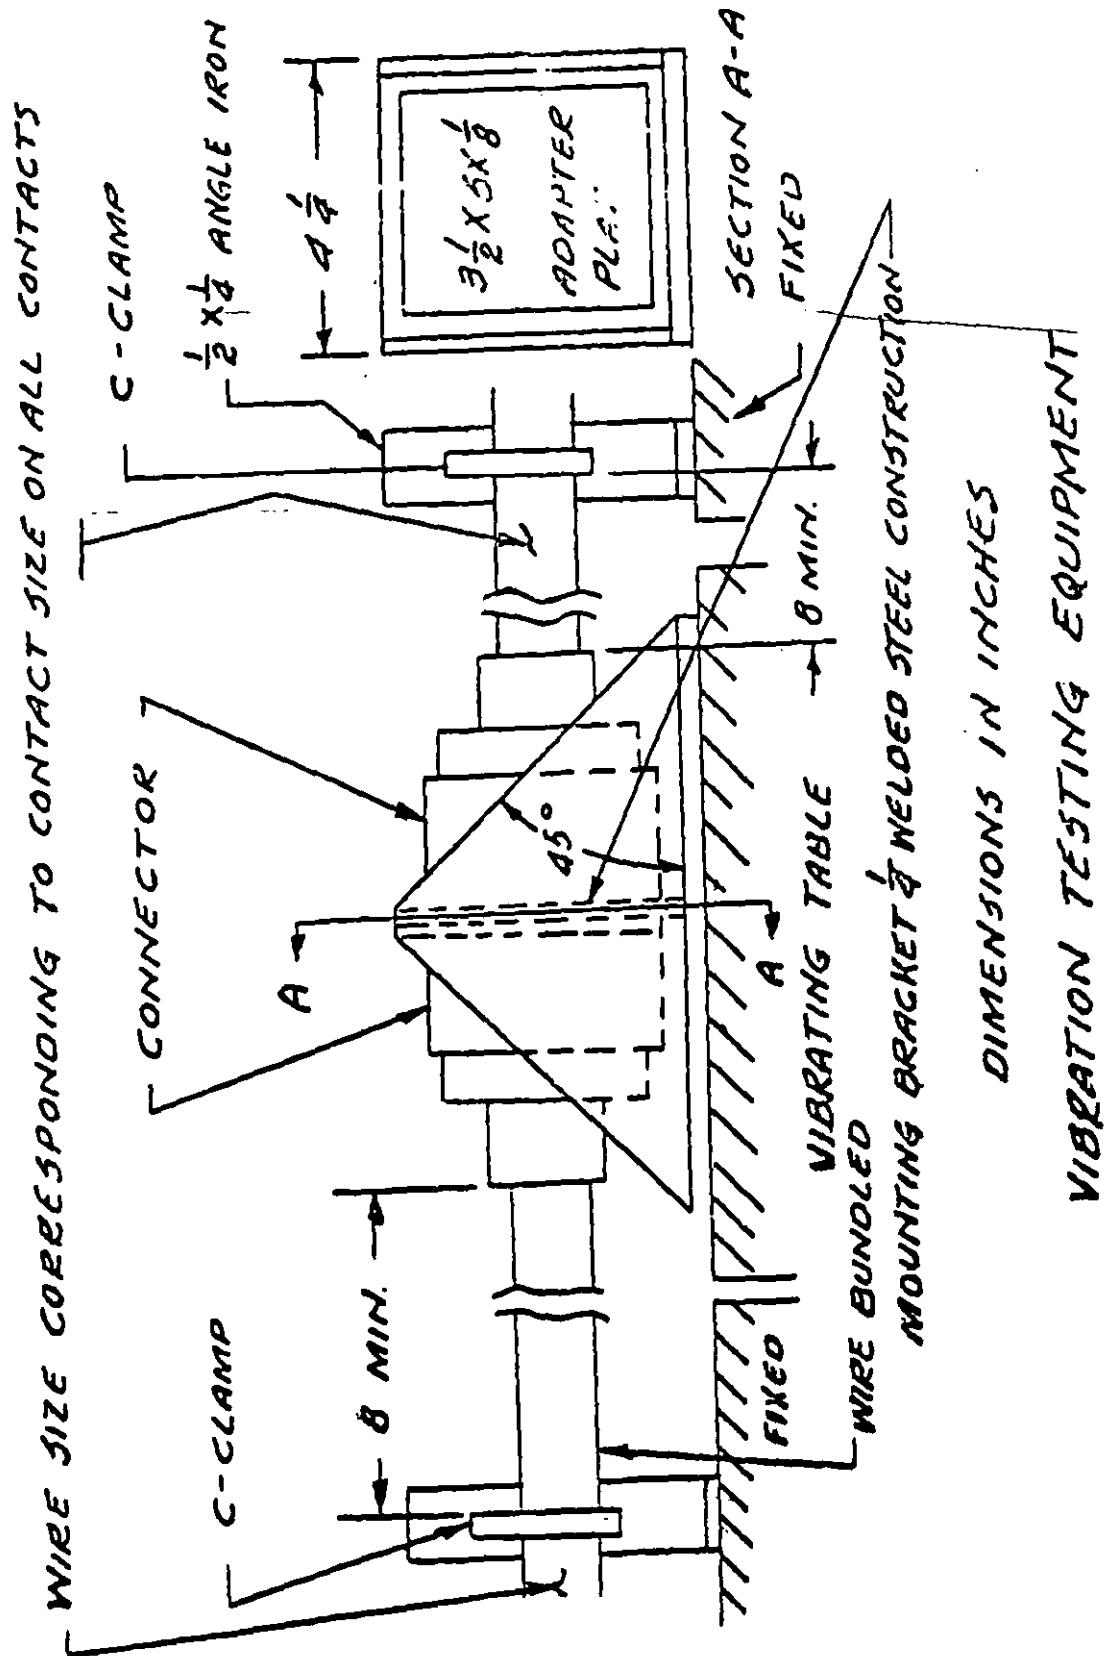 WIRE SIZE CORRESPONDING TO CONTACT SIZE ON ALL CONTACTS
C-CLAMP
CONNECTOR
C-CLAMP
1/2 X 1/4 ANGLE IRON
8 MIN.
4 1/4
A
3 1/2 X 5 X 1/8
ADAPTER
45°
A
8 MIN.
SECTION A-A
FIXED
VIBRATING TABLE
FIXED
WIRE BUNDLED
MOUNTING BRACKET 1/4 WELDED STEEL CONSTRUCTION
DIMENSIONS IN INCHES
VIBRATION TESTING EQUIPMENT